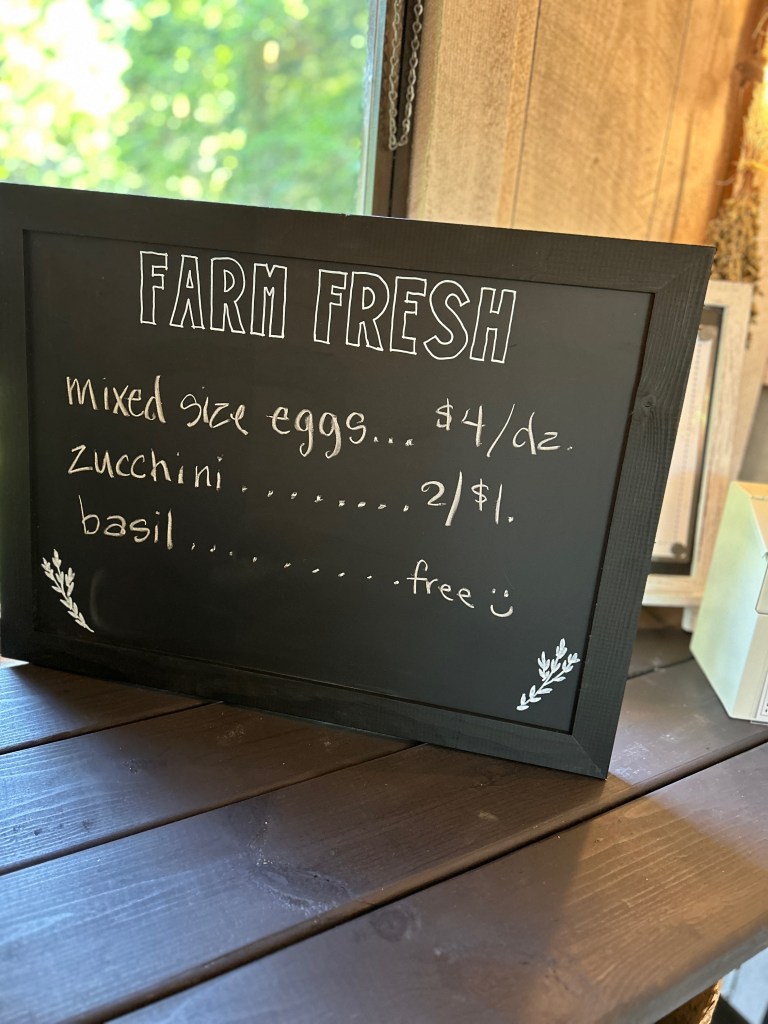 FARM FRESH
mixed size eggs... $4/dz.
zucchini ......... 2/$1.
basil .......... free :)